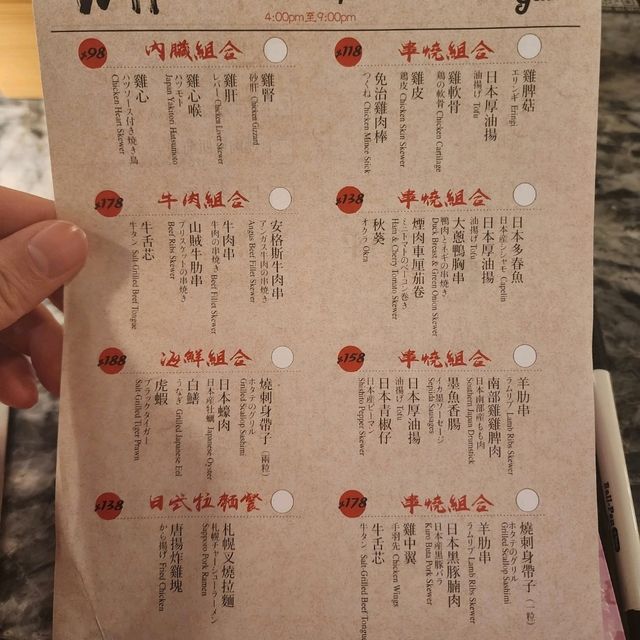 4:00pm至9:00pm
$118
串燒組合
雞脾菇
エリンギ Eringi
日本厚油揚
油揚げ Tofu
雞軟骨
鶏の軟骨 Chicken Cartilage
雞皮
鶏皮 Chicken Skin Skewer
免治雞肉棒
つくね Chicken Mince Stick
$98
內臟組合
雞腎
砂肝 Chicken Gizzard
雞肝
レバー Chicken Liver Skewer
雞心喉
ハツモト Japan Yakitori Hatsumoto
雞心
ハツソース付き焼き鳥
Chicken Heart Skewer
$138
串燒組合
日本多春魚
日本産シシャモ Capelin
日本厚油揚
油揚げ Tofu
大蔥鴨胸串
鴨肉とネギの串焼き
Duck Breast & Green Onion Skewer
煙肉車厘茄卷
Ham & Cherry Tomato Skewer
秋葵
オクラ Okra
$178
牛肉組合
安格斯牛肉串
アンガス牛肉の串焼き
Angus Beef Fillet Skewer
牛肉串
牛肉の串焼き Beef Fillet Skewer
山賊牛肋串
ブリスケットの串焼き
Beef Ribs Skewer
牛舌芯
牛タン Salt Grilled Beef Tongue
$158
串燒組合
羊肋串
ラムリブ Lamb Ribs Skewer
南部雞雞脾肉
日本南部産もも肉
Southern Japan Drumstick
墨魚香腸
イカ墨ソーセージ
Sepiida Sausages
日本厚油揚
油揚げ Tofu
日本青椒仔
日本産ピーマン
Shishito Pepper Skewer
$188
海鮮組合
燒刺身帶子（兩粒）
ホタテのグリル
Grilled Scallop Sashimi
日本蠔肉
日本産牡蠣 Japanese Oyster
白鱔
うなぎ Grilled Japanese Eel
虎蝦
ブラックタイガー
Salt Grilled Tiger Prawn
$178
串燒組合
燒刺身帶子（一粒）
ホタテのグリル
Grilled Scallop Sashimi
羊肋串
ラムリブ Lamb Ribs Skewer
日本黑豚腩肉
日本産黒豚バラ
Kuro Buta Pork Skewer
雞中翼
手羽先 Chicken Wings
牛舌芯
牛タン Salt Grilled Beef Tongue
$138
日式拉麵餐
札幌叉燒拉麵
札幌チャーシューラーメン
Sapporo Pork Ramen
唐揚炸雞塊
から揚げ Fried Chicken